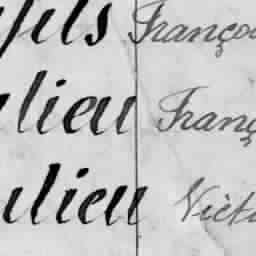 fils Franço
lieu Franç
ulieu Victo